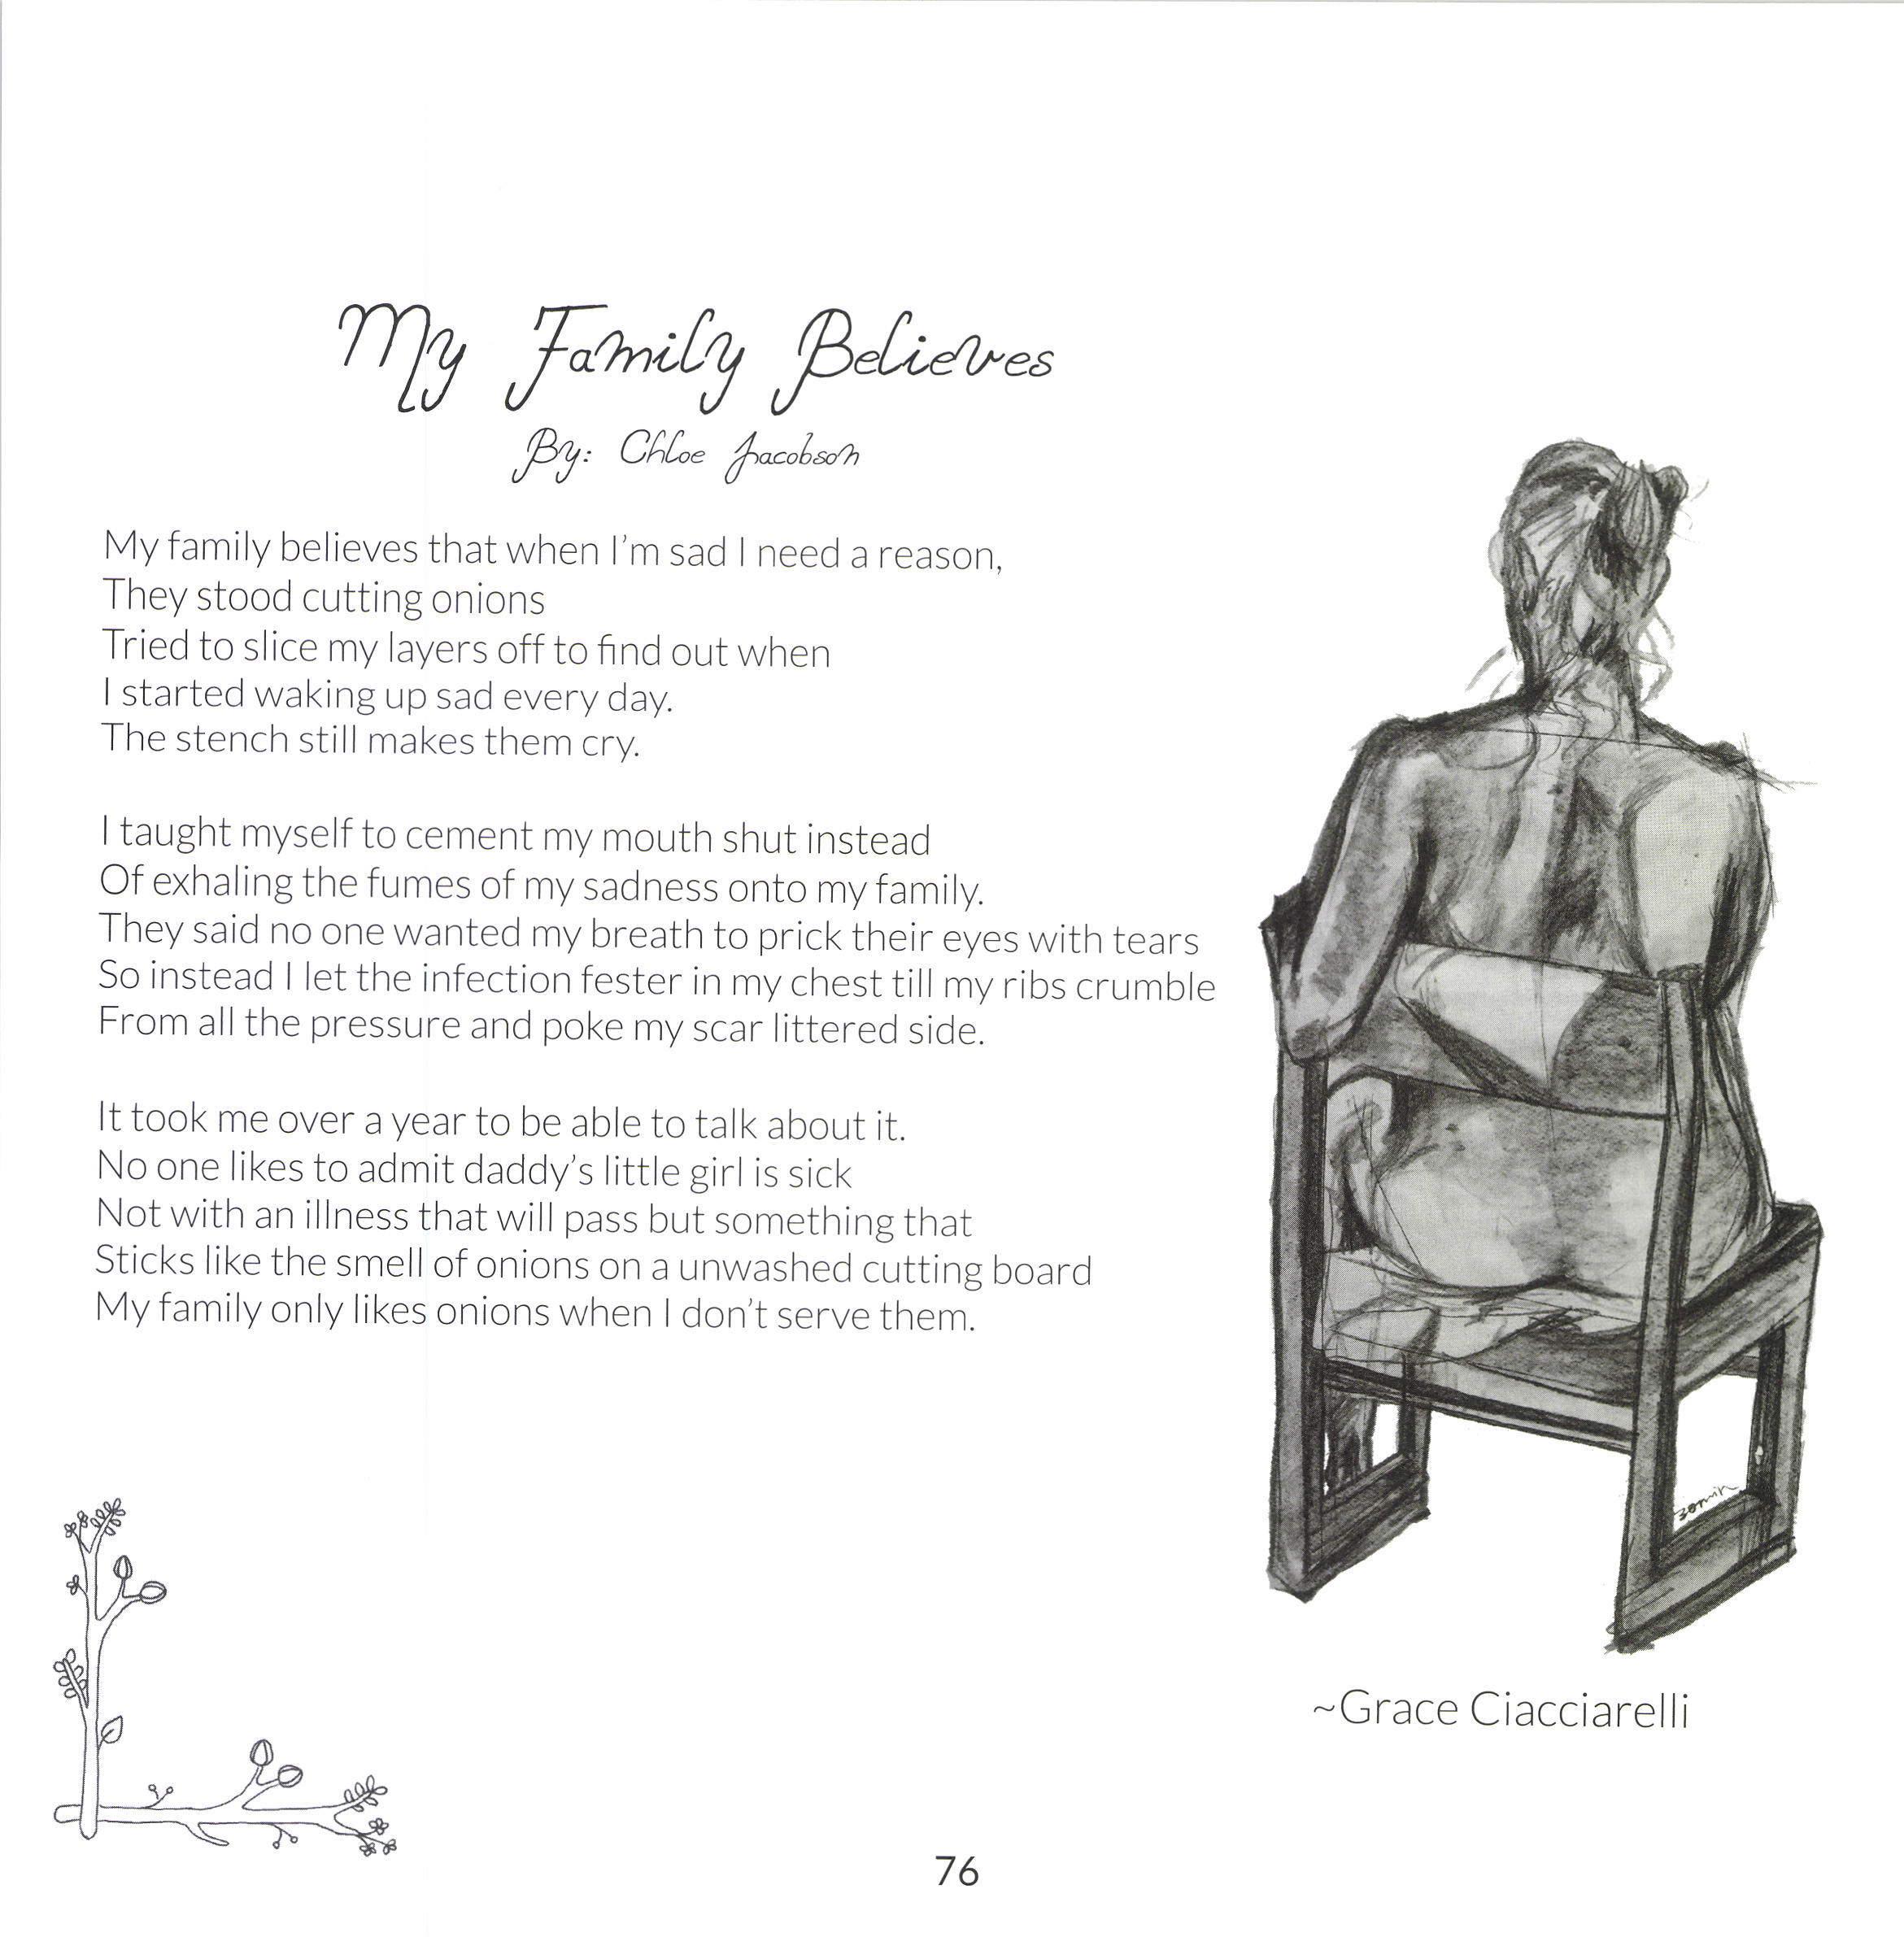 My Family Believes
By: Chloe Jacobson
My family believes that when I'm sad I need a reason,
They stood cutting onions
Tried to slice my layers off to find out when
I started waking up sad every day.
The stench still makes them cry.
I taught myself to cement my mouth shut instead
Of exhaling the fumes of my sadness onto my family.
They said no one wanted my breath to prick their eyes with tears
So instead I let the infection fester in my chest till my ribs crumble
From all the pressure and poke my scar littered side.
It took me over a year to be able to talk about it.
No one likes to admit daddy's little girl is sick
Not with an illness that will pass but something that
Sticks like the smell of onions on a unwashed cutting board
My family only likes onions when I don't serve them.
30min
~Grace Ciacciarelli
76